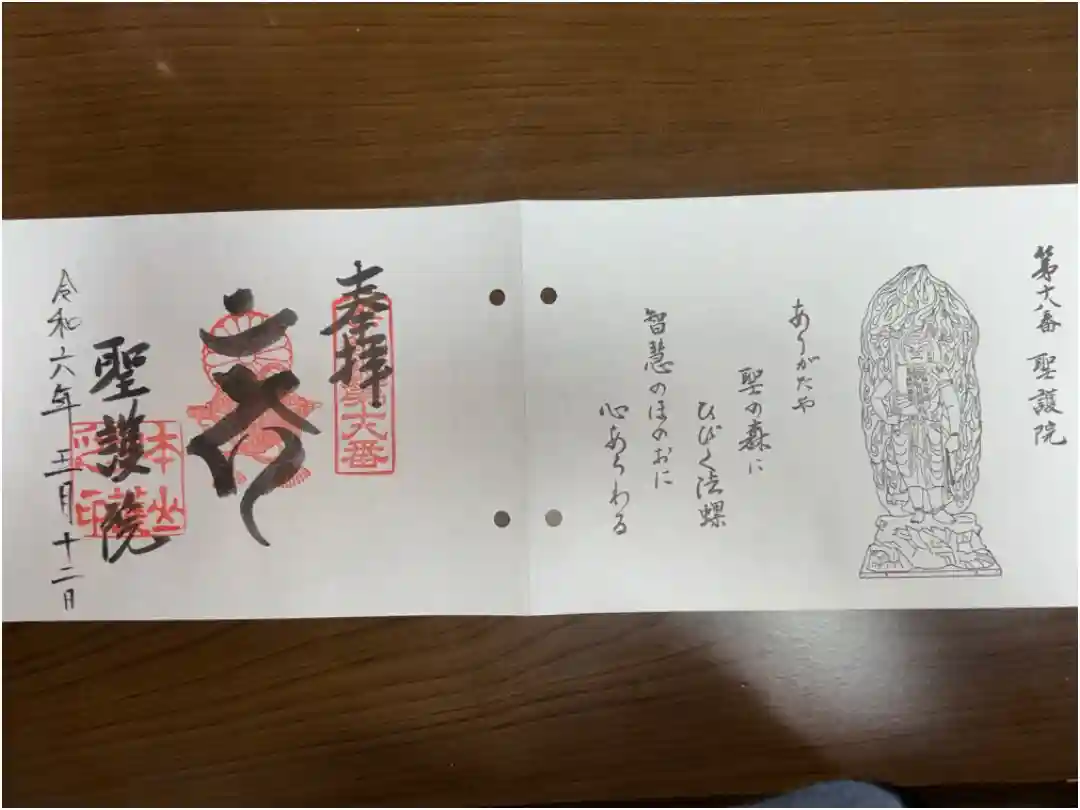 第十八番 聖護院
ありがたや
聖の森に
ひびく法螺
智慧のほのおに
心あらわる
奉拝
聖護院
令和六年 三月十二日